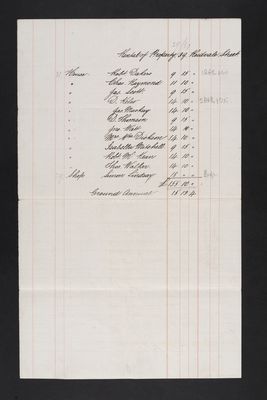 Rental of Property 39 Street
House Robt 9 15 -
" Chas Raymond 11 10 -
" Jas Scott 9 15 -
" D. 14 10 -
" Jas Mackay 14 10 -
" D. Thomson 9 15 -
" Jno Watt 14 10 -
" Mrs Wm Dickson 14 10 -
" Isabella Mitchell 9 15 -
" Robt McKean 14 10 -
" Thos Walker 14 10 -
Shop Simon Lindsay 18 - -
£155 10 -
Ground Annual 18 19 4